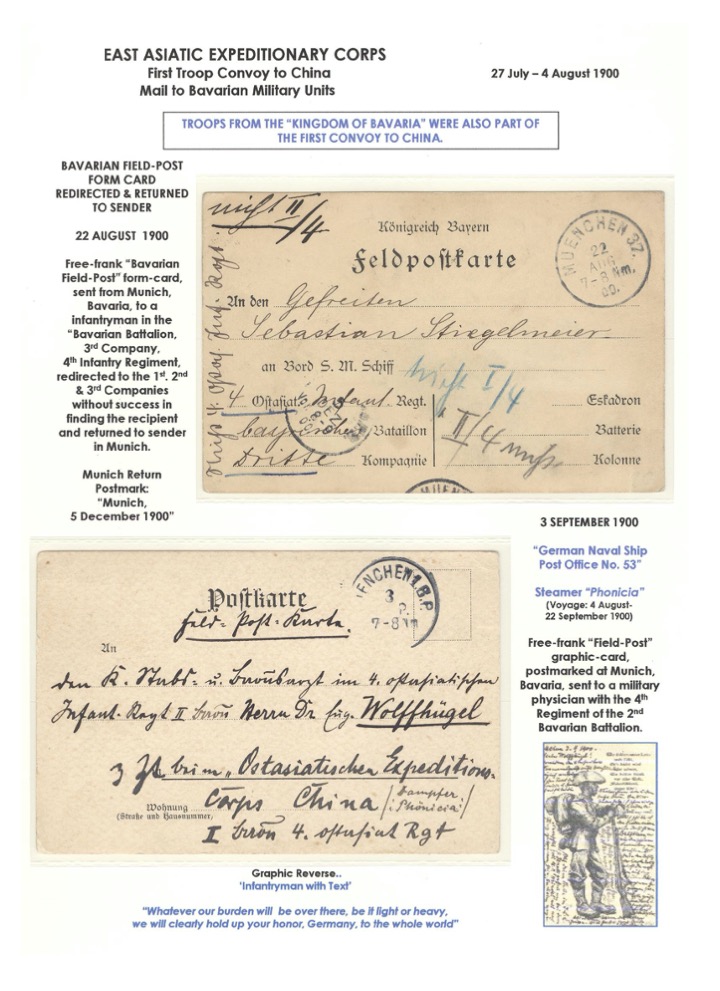 EAST ASIATIC EXPEDITIONARY CORPS
First Troop Convoy to China
27 July – 4 August 1900
Mail to Bavarian Military Units
TROOPS FROM THE "KINGDOM OF BAVARIA" WERE ALSO PART OF
THE FIRST CONVOY TO CHINA.
BAVARIAN FIELD-POST
FORM CARD
REDIRECTED & RETURNED
TO SENDER
22 AUGUST 1900
Free-frank "Bavarian
Field-Post" form-card,
sent from Munich,
Bavaria, to a
infantryman in the
"Bavarian Battalion,
3rd Company,
4th Infantry Regiment,
redirected to the 1st. 2nd
& 3rd Companies
without success in
finding the recipient
and returned to sender
in Munich.
Munich Return
Postmark:
"Munich,
5 December 1900"
nicht II/4
Königreich Bayern
Feldpostkarte
MUENCHEN 37.
22
AUG
7-8 Nm.
00.
An den Gefreiten
Sebastian Stiegelmeier
an Bord S. M. Schiff
nicht I/4
4 Ostasiat. Infant. Regt.
Eskadron
Bataillon
II/4
Batterie
Dritte Kompagnie
Kolonne
MUEN
3 SEPTEMBER 1900
"German Naval Ship
Post Office No. 53"
Steamer "Phonicia"
(Voyage: 4 August-
22 September 1900)
Free-frank "Field-Post"
graphic-card,
postmarked at Munich,
Bavaria, sent to a military
physician with the 4th
Regiment of the 2nd
Bavarian Battalion.
Postkarte
Feld-Post-Karte.
ENCHEN 1. B.P.
3
P.
7-8 Nm
An
den K. Stabs- u. Bataillonsarzt im 4. ostasiatischen
Infant. Regt II Herrn Dr Eug. Wolffhügel
3 Zt beim "Ostasiatischen Expeditions-
Corps China (Dampfer
Phönicia)
Wohnung
(Straße und Hausnummer)
I 4. ostasiat Rgt
Graphic Reverse..
'Infantryman with Text'
"Whatever our burden will be over there, be it light or heavy,
we will clearly hold up your honor, Germany, to the whole world"